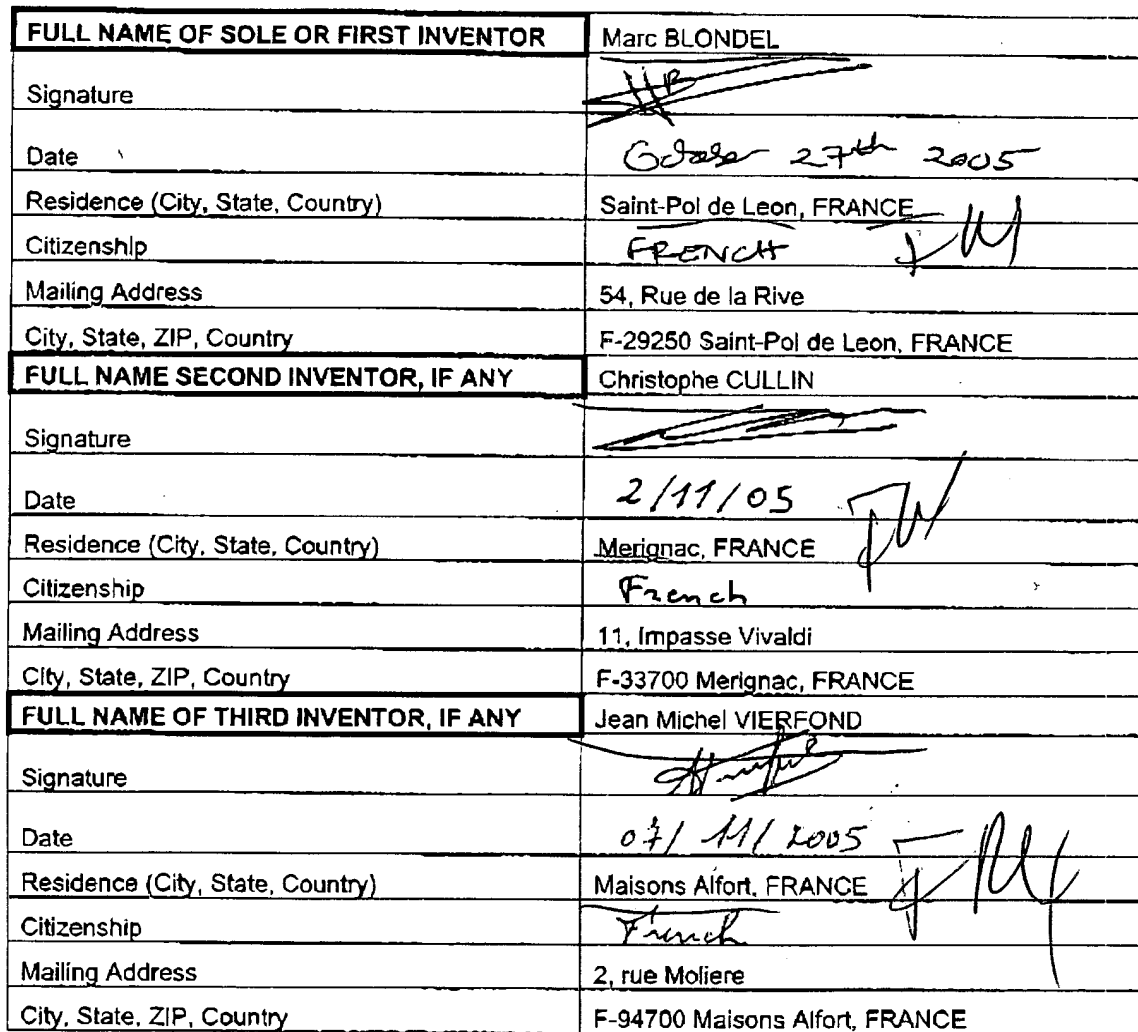 FULL NAME OF SOLE OR FIRST INVENTOR Marc BLONDEL
Signature
Date October 27th 2005
Residence (City, State, Country) Saint-Pol de Leon, FRANCE
Citizenship FRENCH
Mailing Address 54, Rue de la Rive
City, State, ZIP, Country F-29250 Saint-Pol de Leon, FRANCE
FULL NAME SECOND INVENTOR, IF ANY Christophe CULLIN
Signature
Date 2/11/05
Residence (City, State, Country) Merignac, FRANCE
Citizenship French
Mailing Address 11, Impasse Vivaldi
City, State, ZIP, Country F-33700 Merignac, FRANCE
FULL NAME OF THIRD INVENTOR, IF ANY Jean Michel VIERFOND
Signature
Date 07/11/2005
Residence (City, State, Country) Maisons Alfort, FRANCE
Citizenship French
Mailing Address 2, rue Moliere
City, State, ZIP, Country F-94700 Maisons Alfort, FRANCE